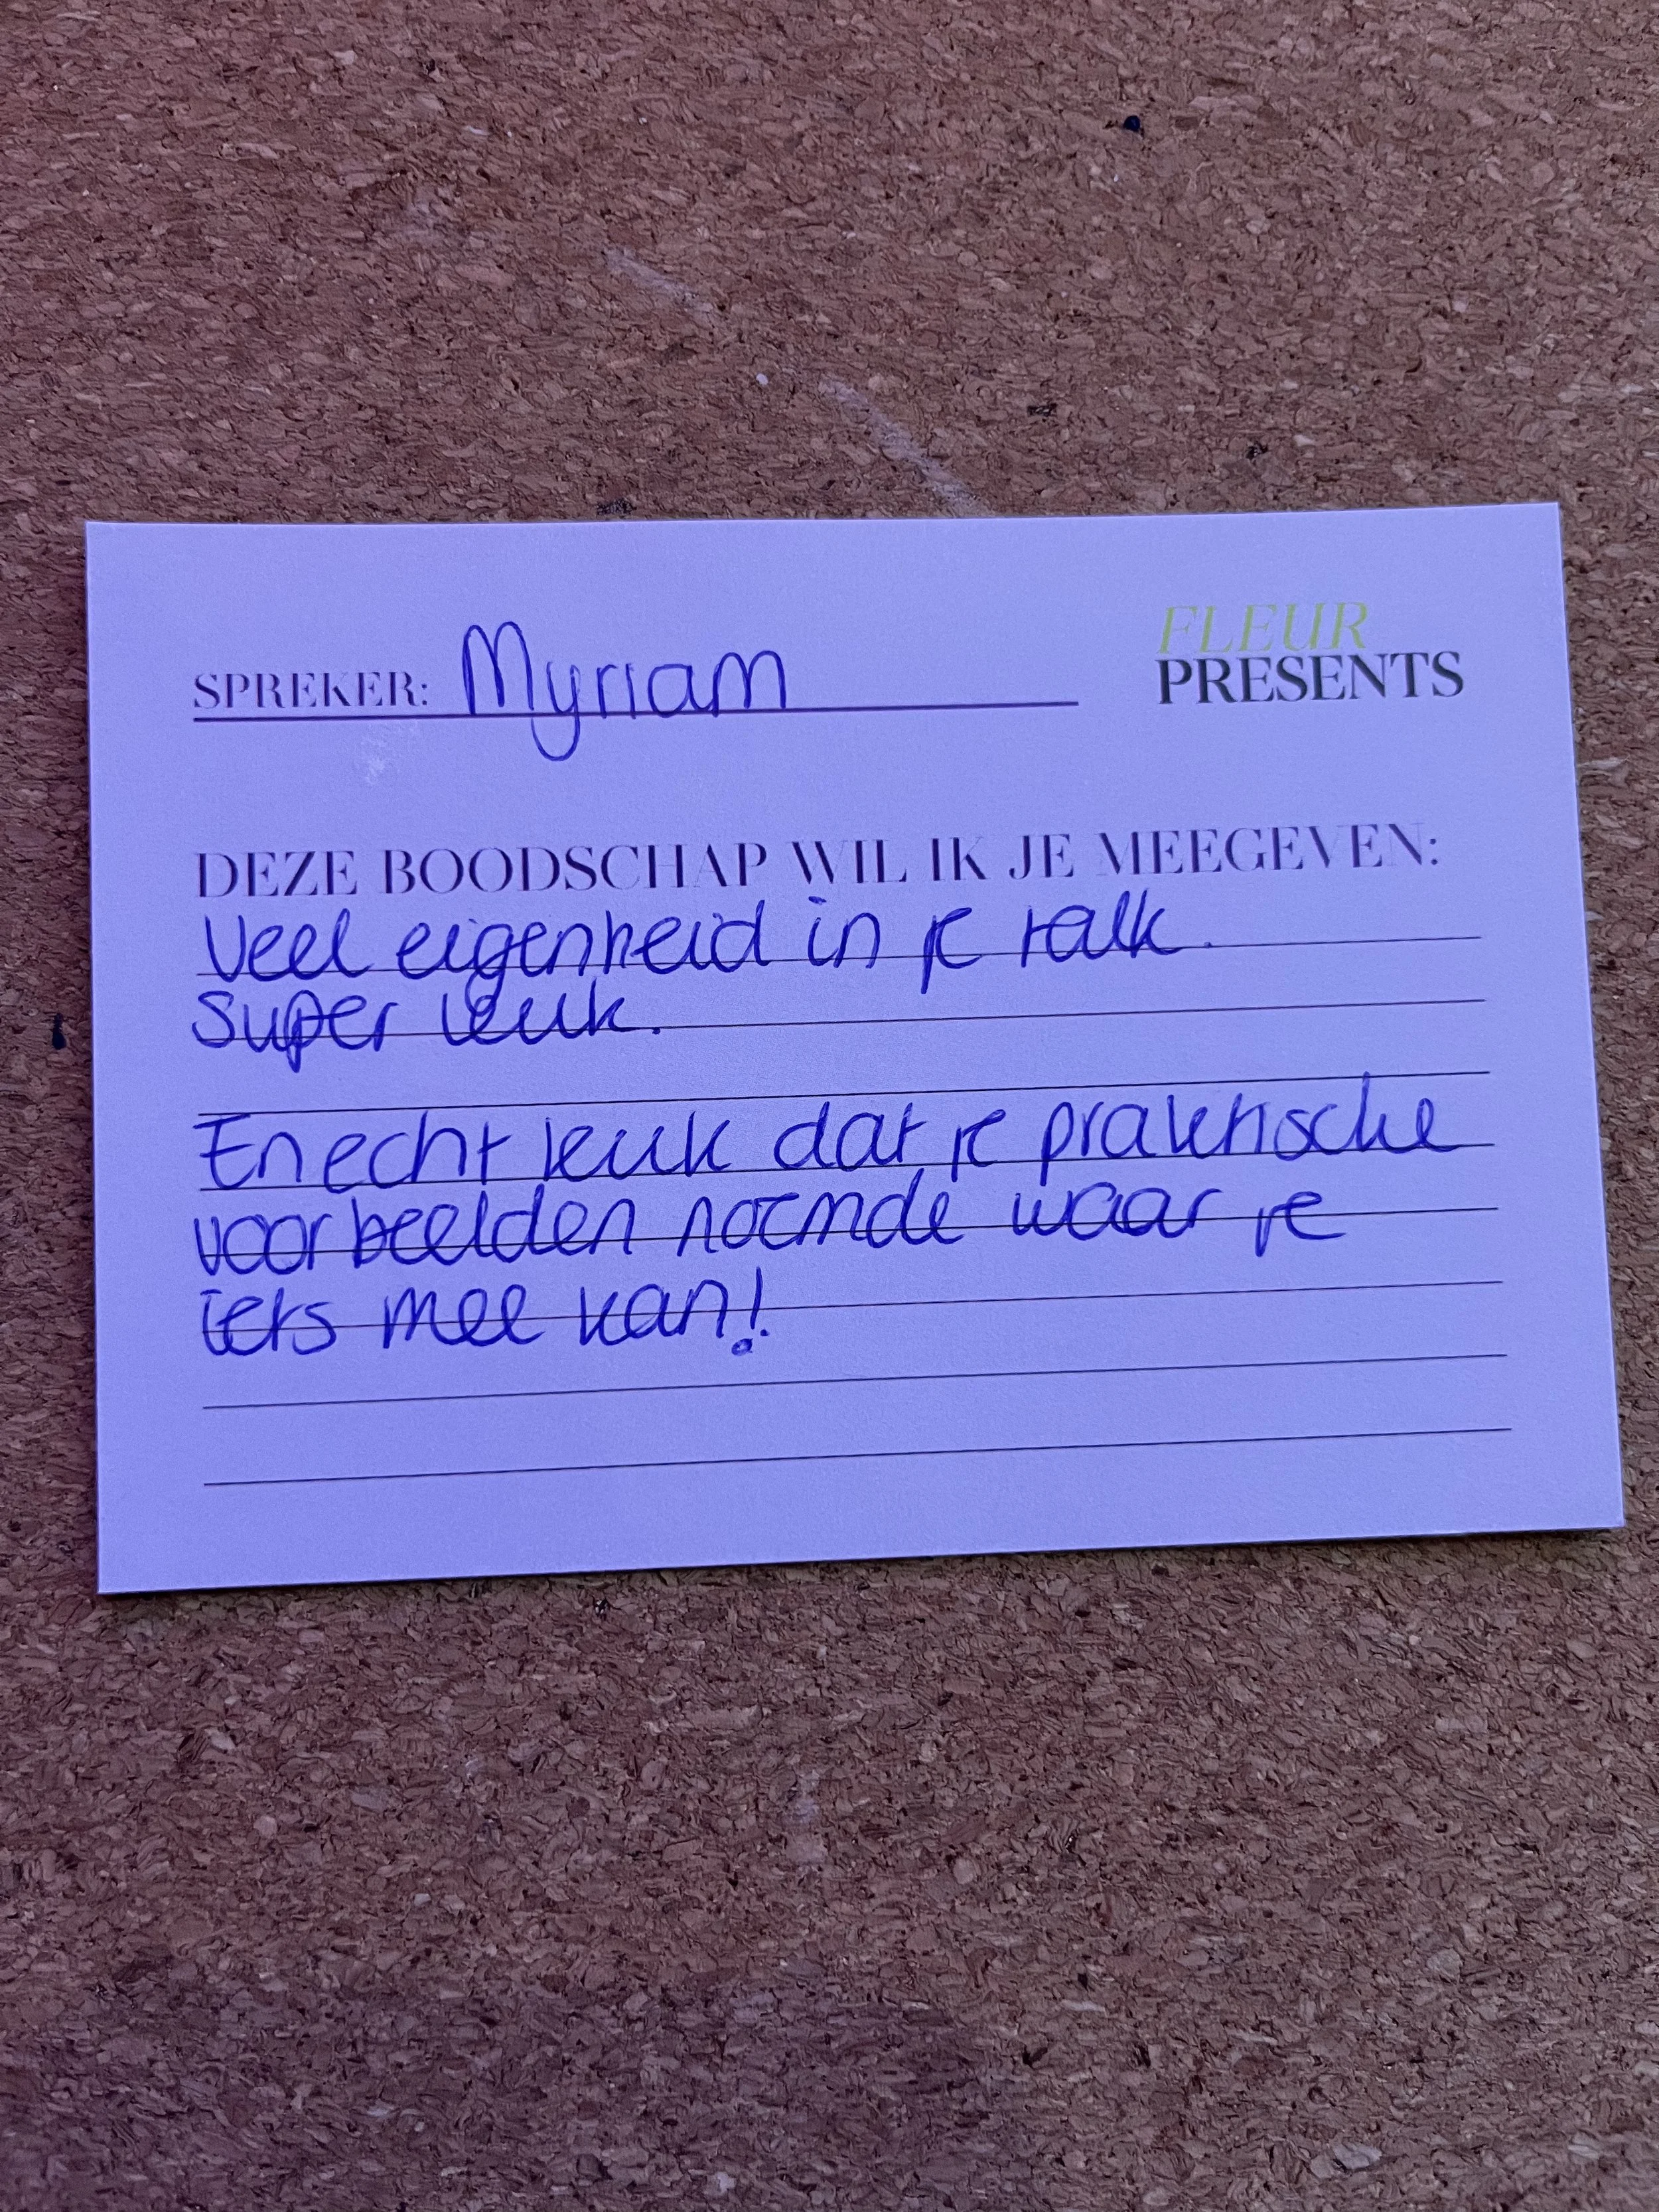 FLEUR
PRESENTS
SPREKER: Myriam
DEZE BOODSCHAP WIL IK JE MEEGEVEN:
Veel eigenheid in je talk.
Super leuk.
En echt leuk dat je praktische
voorbeelden noemde waar je
iets mee kan!